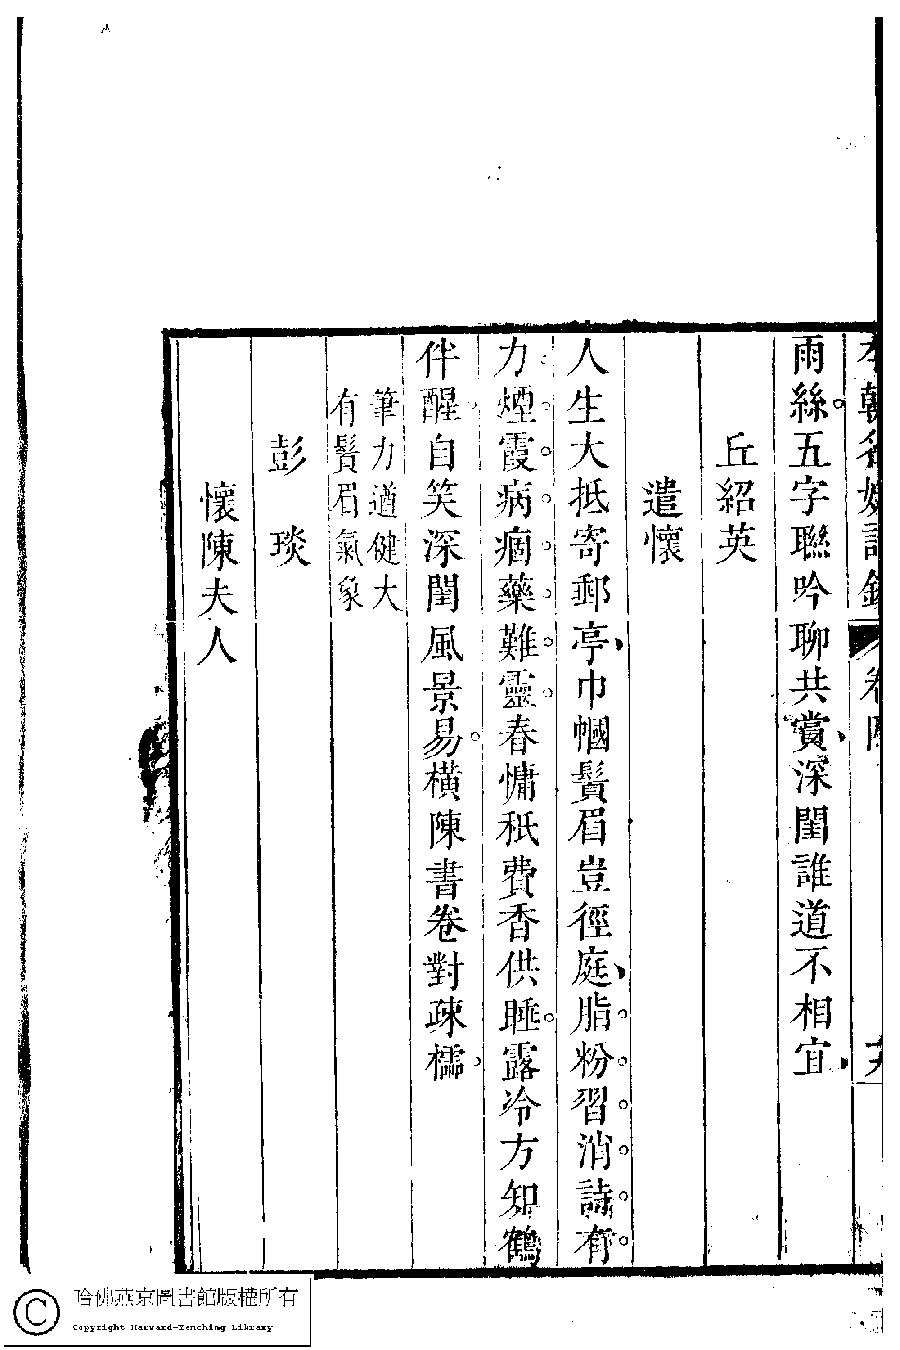 本朝名媛詩鈔 卷
雨絲五字聯吟聊共賞深閨誰道不相宜
丘紹英
遣懷
人生大抵寄郵亭巾幗鬚眉豈徑庭脂粉習消詩有
力煙霞病痼藥難靈春慵秖費香供睡露冷方知鶴
伴醒自笑深閨風景易橫陳書卷對疎櫺
筆力遒健大
有鬚眉氣象
彭琰
懷陳夫人
哈佛燕京圖書館版權所有
Copyright Harvard-Yenching Library